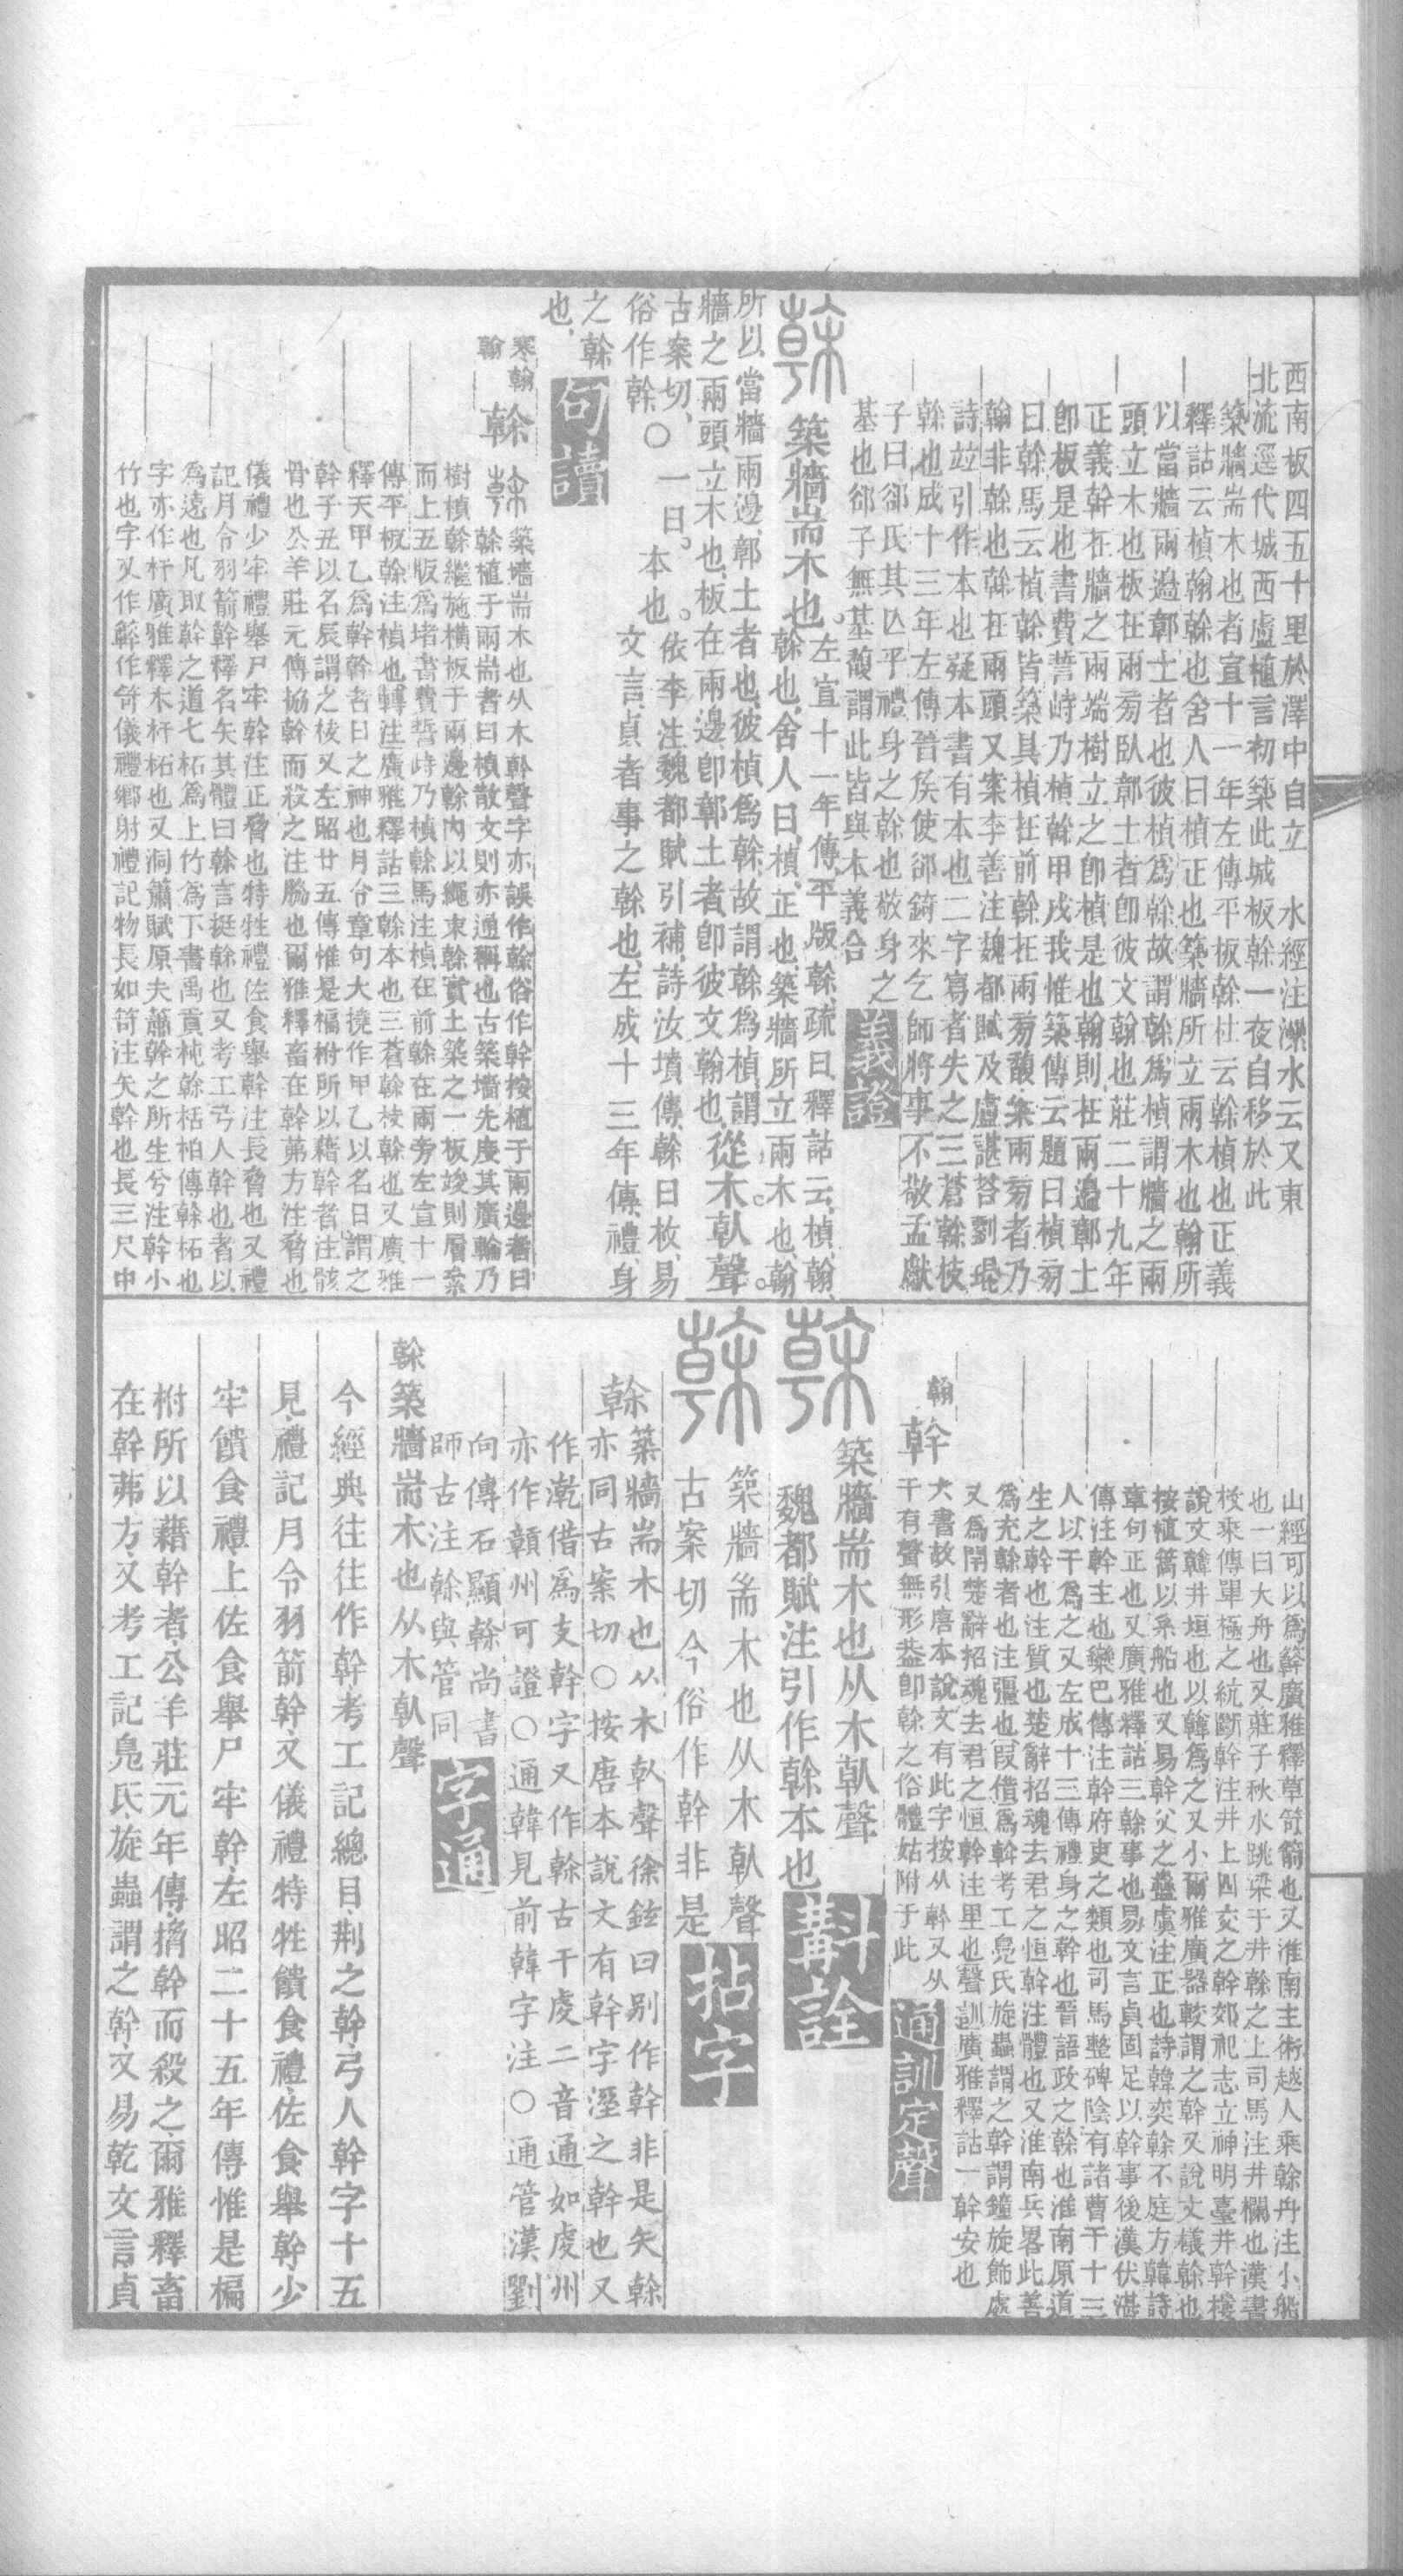 西南板四五十里於澤中自立　水經注漯水云又東
北流逕代城西盧植言初築此城板榦一夜自移於此
築牆耑木也者宣十一年左傳平板榦杜云榦楨也正義
釋詁云楨翰榦也舍人曰楨正也築牆所立兩木也翰所
以當牆兩邊鄣土者也彼楨爲榦故謂榦爲楨謂牆之兩
頭立木也板在兩旁臥鄣土者即彼文翰也莊二十九年
正義榦在牆之兩端樹立之即楨是也翰則在兩邊鄣土
即板是也書費誓峙乃楨榦甲戌我惟築傳云題曰楨旁
曰榦馬云楨榦皆築具楨在前榦在兩旁馥案兩旁者乃
翰非榦也榦在兩頭又案李善注魏都賦及盧諶荅劉琨
詩竝引作本也疑本書有本也二字寫者失之三蒼榦枝
榦也成十三年左傳晉侯使郤錡來乞師將事不敬孟獻
子曰郤氏其亾乎禮身之榦也敬身之
基也郤子無基馥謂此皆與本義合
義證
榦
築牆耑木也。左宣十一年傳平版榦疏曰釋詁云楨翰
榦也舍人曰楨正也築牆所立兩木也翰
所以當牆兩邊鄣土者也彼楨爲榦故謂榦爲楨謂
牆之兩頭立木也板在兩邊卽鄣土者卽彼文翰也從木倝聲。
古案切。一曰本也。依李注魏都賦引補詩汝墳傳榦曰枚易
俗作幹○文言貞者事之榦也左成十三年傳禮身
之榦
也
句讀
寒翰
翰
榦
榦築墻耑木也从木倝聲字亦誤作榦俗作幹按植于兩邊者曰
榦植于兩耑者曰楨散文則亦通稱也古築墻先度其廣輪乃
樹楨榦繼施橫板于兩邊榦內以繩束榦實土築之一板竣則層絫
而上五版爲堵書費誓峙乃楨榦馬注楨在前榦在兩旁左宣十一
傳平板榦注楨也轉注廣雅釋詁三榦本也三蒼榦枝榦也又廣雅
釋天甲乙爲幹幹者日之神也月令章句大撓作甲乙以名日謂之
幹子丑以名辰謂之枝又左昭廿五傳惟是楄柎所以藉幹者注骸
骨也公羊莊元傳搚幹而殺之注脇也爾雅釋畜在幹茀方注脅也
儀禮少牢禮舉尸牢幹注正脅也特牲禮佐食舉幹注長脅也又禮
記月令羽箭幹釋名矢其體曰榦言挺榦也又考工弓人幹也者以
爲遠也凡取幹之道七柘爲上竹爲下書禹貢杶榦栝柏傳榦柘也
字亦作杆廣雅釋木杆柘也又洞簫賦原夫蕭幹之所生兮注幹小
竹也字又作簳作笴儀禮鄉射禮記物長如笴注矢幹也長三尺中
山經可以爲簳廣雅釋草笴箭也又淮南主術越人乘榦舟注小船
也一曰大舟也又莊子秋水跳梁于井榦之上司馬注井欄也漢書
枚乘傳單極之統斷幹注井上四交之幹郊祀志立神明臺井幹樓
說文韓井垣也以韓爲之又小爾雅廣器較謂之幹又說文檥榦也
按植篙以系船也又易幹父之蠱虞注正也詩韓奕榦不庭方韓詩
章句正也又廣雅釋詁三榦事也易文言貞固足以幹事後漢伏湛
傳注幹主也欒巴傳注幹府吏之類也司馬整碑陰有諸曹干十三
人以干爲之又左成十三傳禮身之幹也晉語政之榦也淮南原道
生之幹也注質也楚辭招魂去君之恒幹注體也又淮南兵畧此善
爲充榦者也注彊也叚借爲斡考工鳧氏旋蟲謂之幹謂鐘旋飾處
又爲閈楚辭招魂去君之恒幹注里也聲訓廣雅釋詁一幹安也
翰
幹
大書故引唐本說文有此字按从榦又从
干有聲無形葢卽榦之俗體姑附于此
通訓定聲
榦
築牆耑木也从木倝聲
魏都賦注引作榦本也
斠詮
榦
築牆耑木也从木倝聲
古案切今俗作幹非是
拈字
榦築牆耑木也从木倝聲徐鉉曰別作幹非是矢榦
亦同古案切○按唐本說文有幹字溼之幹也又
作漧借爲支幹字又作榦古干虔二音通如虔州
亦作贛州可證○通韓見前韓字注○通管漢劉
向傳石顯榦尚書
師古注榦與管同
字通
榦築牆耑木也从木倝聲
今經典往往作幹考工記總目荆之幹弓人幹字十五
見禮記月令羽箭幹又儀禮特牲饋食禮佐食舉幹少
牢饋食禮上佐食舉尸牢幹左昭二十五年傳惟是楄
柎所以藉幹者公羊莊元年傳搚幹而殺之爾雅釋畜
在幹茀方又考工記鳧氏旋蟲謂之幹又易乾文言貞